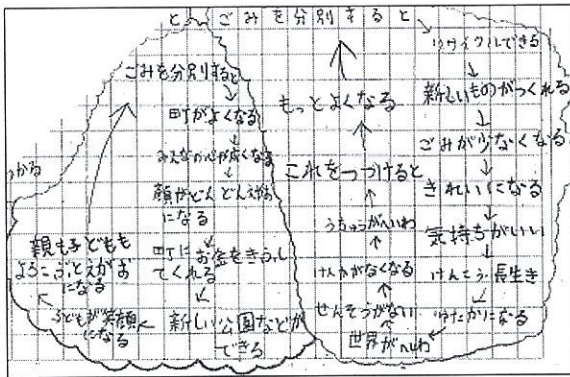 と ごみを分別すると
リサイクルできる
新しいものがつくれる
ごみが少なくなる
きれいになる
気持ちがいい
けんこう・長生き
ゆたかになる
世界がへいわ
せんそうがない
けんかがなくなる
うちゅうがへいわ
これをつづけると
もっとよくなる
ごみを分別すると
町がよくなる
みんなの心が広くなる
顔がどんどんえがお
になる
町にお金をきふし
てくれる
新しい公園などが
できる
子どもが笑顔
になる
親も子どもも
よろこぶとえがお
になる
かる